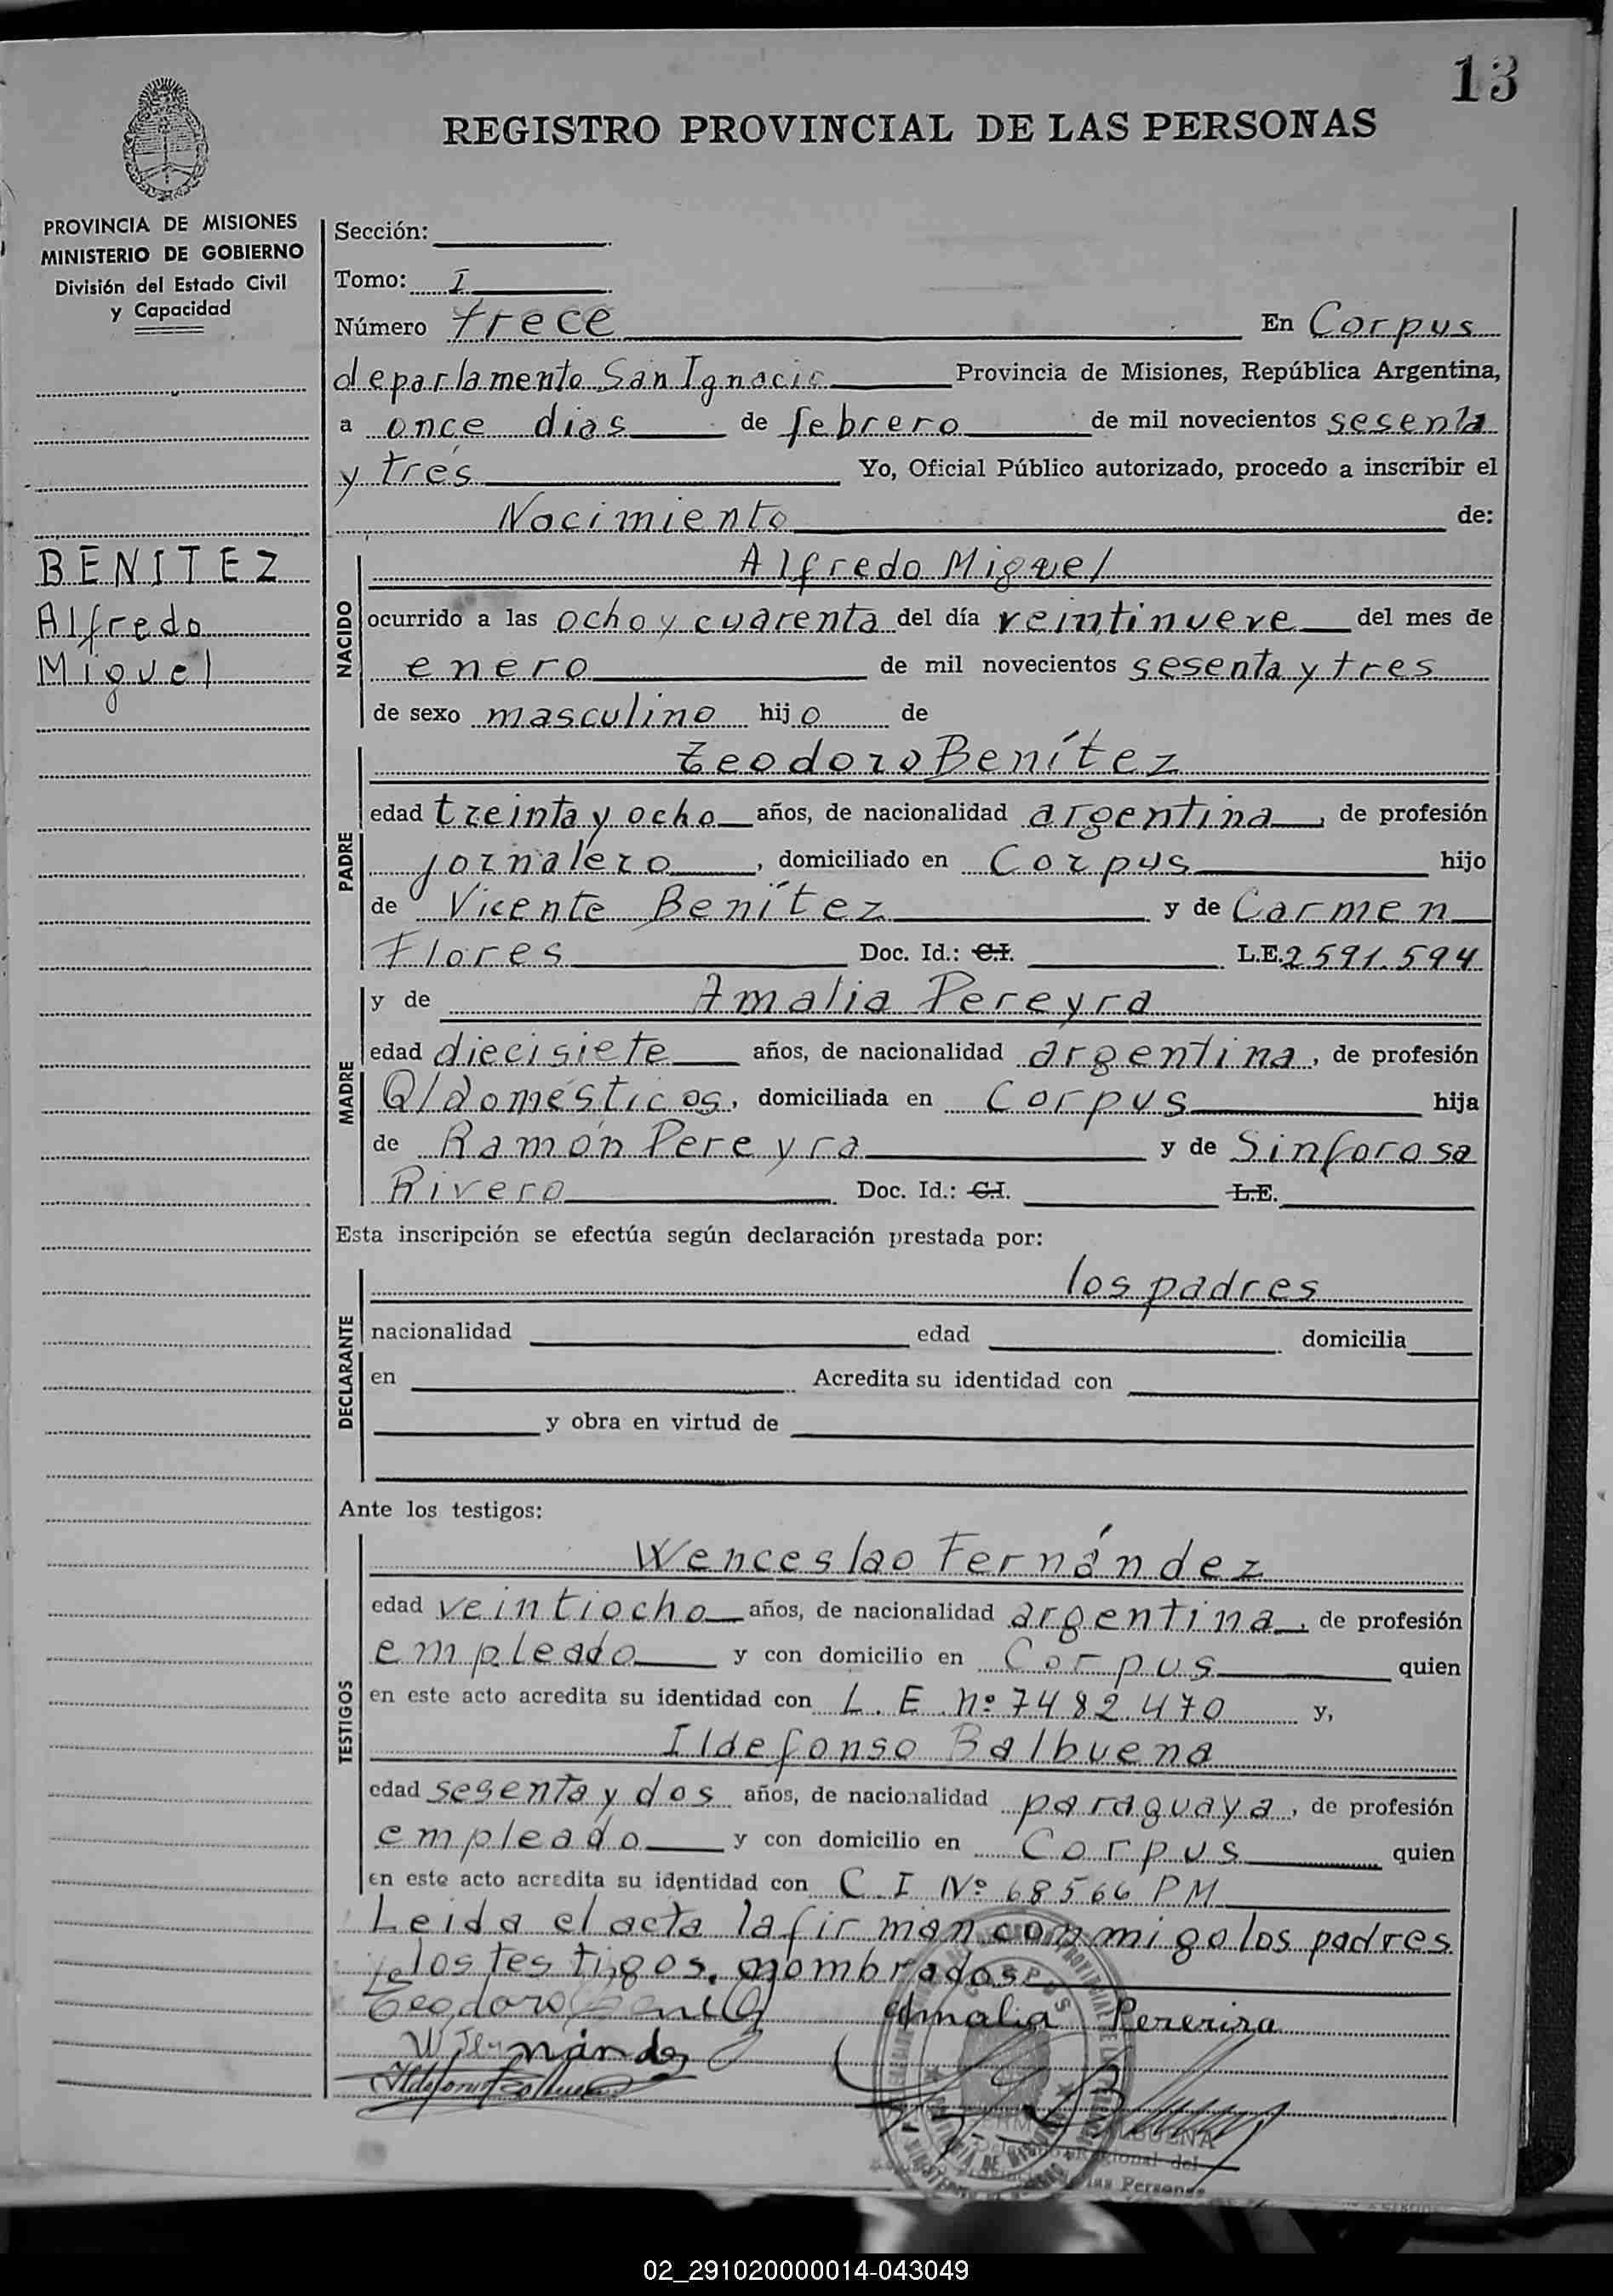 13
REGISTRO PROVINCIAL DE LAS PERSONAS
PROVINCIA DE MISIONES
MINISTERIO DE GOBIERNO
División del Estado Civil
y Capacidad
BENITEZ
Alfredo
Miguel
Sección:
Tomo: I
Número trece En Corpus
departamento San Ignacio Provincia de Misiones, República Argentina,
a once dias de febrero de mil novecientos sesenta
y trés Yo, Oficial Público autorizado, procedo a inscribir el
Nacimiento de:
NACIDO
Alfredo Miguel
ocurrido a las ocho y cuarenta del día veintinueve del mes de
enero de mil novecientos sesenta y tres
de sexo masculino hijo de
PADRE
Teodoro Benítez
edad treinta y ocho años, de nacionalidad argentina, de profesión
jornalero, domiciliado en Corpus hijo
de Vicente Benítez y de Carmen
Flores Doc. Id.: C.I. L.E. 2591.594
MADRE
y de Amalia Pereyra
edad diecisiete años, de nacionalidad argentina, de profesión
Q/domésticos, domiciliada en Corpus hija
de Ramón Pereyra y de Sinforosa
Rivero Doc. Id.: C.I. L.E.
Esta inscripción se efectúa según declaración prestada por:
DECLARANTE
los padres
nacionalidad edad domicilia
en Acredita su identidad con
y obra en virtud de
Ante los testigos:
TESTIGOS
Wenceslao Fernández
edad veintiocho años, de nacionalidad argentina, de profesión
empleado y con domicilio en Corpus quien
en este acto acredita su identidad con L.E. Nº 7482.470 y,
Ildefonso Balbuena
edad sesenta y dos años, de nacionalidad paraguaya, de profesión
empleado y con domicilio en Corpus quien
en este acto acredita su identidad con C.I Nº 68566 PM
Leida el acta la firman conmigo los padres
y los testigos nombrados
Teodoro Amalia Pererira
CORPUS
las Personas
02_291020000014-043049